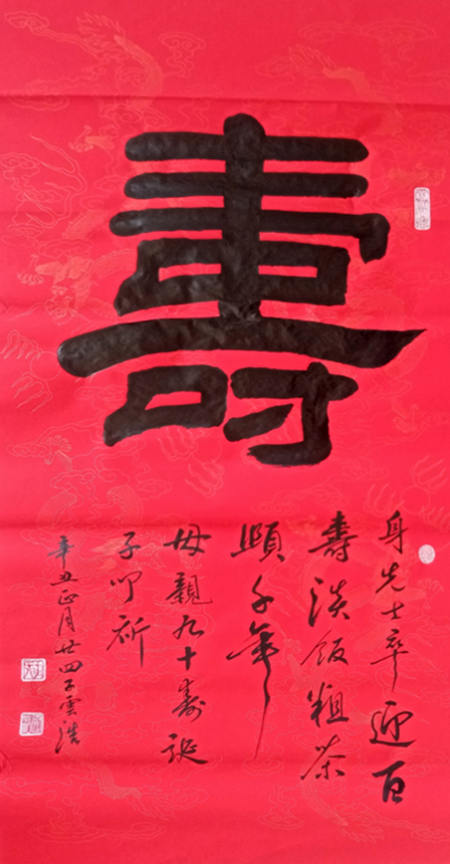 壽
身先士卒迎百
壽淡飯粗茶
頤千年
母親九十壽誕
子叩祈
辛丑正月廿四子雲浩